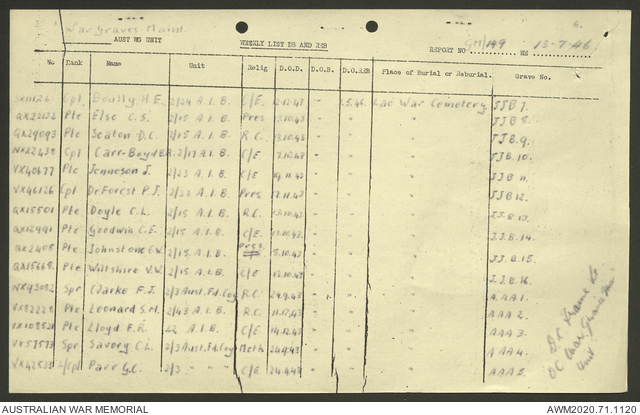 War Graves Maint 6.
AUST WG UNIT WEEKLY LIST DB AND REB REPORT NO GM/149 WE 13-7-46
No Rank Name Unit Relig D.O.D. D.O.B. D.O.REB Place of Burial or Reburial. Grave No.
Cpl H.E. 2/24 A.I.B. C/E 12.12.43 - 1.5.46 Lae War Cemetery JJB 7.
QX22172 Pte Else C.S. 2/15 A.I.B. Pres 13.10.43 - " " JJB 8.
QX29093 Pte Seaton D.C. 2/15 A.I.B. R.C. 13.10.43 - " " JJB.9.
NX22438 Cpl Carr-Boyd 2/17 A.I.B. C/E .10.43 - " " JJB.10.
VX40677 Pte Jenneson J. 2/23 A.I.B. C/E .11.43 - " " JJB 11.
VX46126 Cpl DeForest P.J. 2/23 A.I.B. Pres 17.11.43 - " " JJB 12.
QX15501 Pte Doyle C.L. 2/15 A.I.B. R.C. 13.10.43 - " " JJB.13.
QX12991 Pte Goodwin C.E. 2/15 A.I.B. C/E .10.43 - " " JJB.14.
QX2408 Pte Johnstone C.W. 2/15 A.I.B. Pres. .10.43 - " " JJB.15.
QX15668 Pte Wiltshire V.W. 2/15 A.I.B. C/E 13.10.43 - " " JJB.16.
NX93082 Spr Clarke F.J. 2/3 Aust.Fd.Coy R.C. 24.9.43 - " " A.AA 1.
VX52228 Pte Leonard S.M. 2/43 A.I.B. R.C. 11.12.43 - " " AAA 2.
VX108521 Pte Lloyd F.R. 22 A.I.B. C/E 14.12.43 - " " AAA 3.
VX57573 Spr Savory C.L. 2/3 Aust.Fd.Coy Meth 24.9.43 - " " AAA 4.
VX42538 L/Cpl Parr G.C. 2/3 " " " C/E 24.9.43 - " " AAA 5.
OC War Graves
Unit
AUSTRALIAN WAR MEMORIAL AWM2020.71.1120